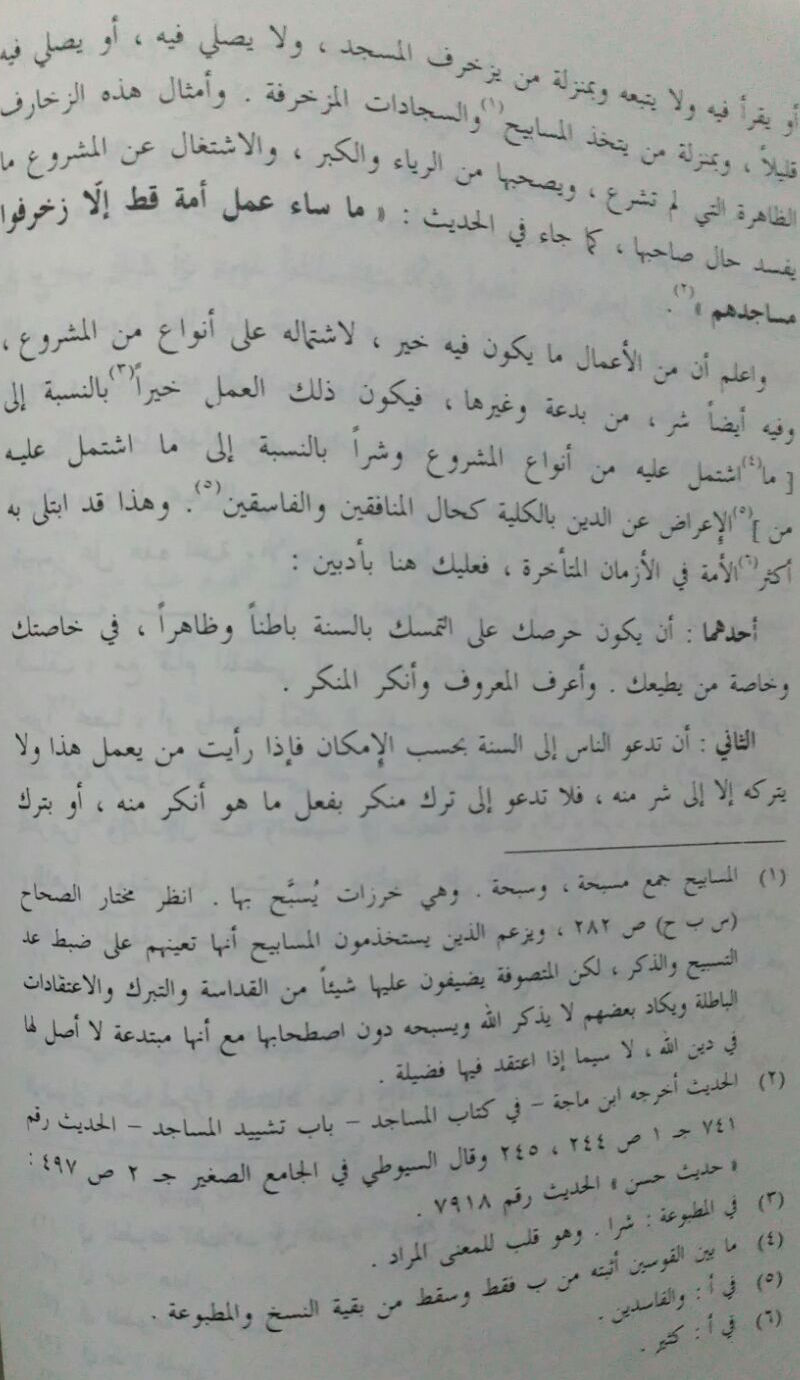 أو يقرأ فيه ولا يتبعه وبمنزلة من يزخرف المسجد ، ولا يصلي فيه ، أو يصلي فيه
قليلاً ، وبمنزلة من يتخذ المسابيح(١) والسجادات المزخرفة . وأمثال هذه الزخارف
الظاهرة التي لم تشرع ، ويصحبها من الرياء والكبر ، والاشتغال عن المشروع ما
يفسد حال صاحبها ، كما جاء في الحديث : « ما ساء عمل أمة قط إلَّا زخرفوا
مساجدهم »(٢) .
واعلم أن من الأعمال ما يكون فيه خير ، لاشتماله على أنواع من المشروع ،
وفيه أيضاً شر ، من بدعة وغيرها ، فيكون ذلك العمل خيراً(٣) بالنسبة إلى
[ ما(٤) اشتمل عليه من أنواع المشروع وشراً بالنسبة إلى ما اشتمل عليه
من ](٥) الإعراض عن الدين بالكلية كحال المنافقين والفاسقين(٥) . وهذا قد ابتلى به
أكثر(٦) الأمة في الأزمان المتأخرة ، فعليك هنا بأدبين :
أحدهما : أن يكون حرصك على التمسك بالسنة باطناً وظاهراً ، في خاصتك
وخاصة من يطيعك . وأعرف المعروف وأنكر المنكر .
الثاني : أن تدعو الناس إلى السنة بحسب الإمكان فإذا رأيت من يعمل هذا ولا
يتركه إلا إلى شر منه ، فلا تدعو إلى ترك منكر بفعل ما هو أنكر منه ، أو بترك
(١) المسابيح جمع مسبحة ، وسبحة . وهي خرزات يُسبَّح بها . انظر مختار الصحاح
(س ب ح) ص ٢٨٢ ، ويزعم الذين يستخذمون المسابيح أنها تعينهم على ضبط عد
التسبيح والذكر ، لكن المتصوفة يضيفون عليها شيئاً من القداسة والتبرك والاعتقادات
الباطلة ويكاد بعضهم لا يذكر الله ويسبحه دون اصطحابها مع أنها مبتدعة لا أصل لها
في دين الله ، لا سيما إذا اعتقد فيها فضيلة .
(٢) الحديث أخرجه ابن ماجة – في كتاب المساجد – باب تشييد المساجد – الحديث رقم
٧٤١ جـ ١ ص ٢٤٤ ، ٢٤٥ وقال السيوطي في الجامع الصغير جـ ٢ ص ٤٩٧ :
« حديث حسن » الحديث رقم ٧٩١٨ .
(٣) في المطبوعة : شرا . وهو قلب للمعنى المراد .
(٤) ما بين القوسين أثبته من ب فقط وسقط من بقية النسخ والمطبوعة .
(٥) في أ : والفاسدين .
(٦) في أ : كثير .